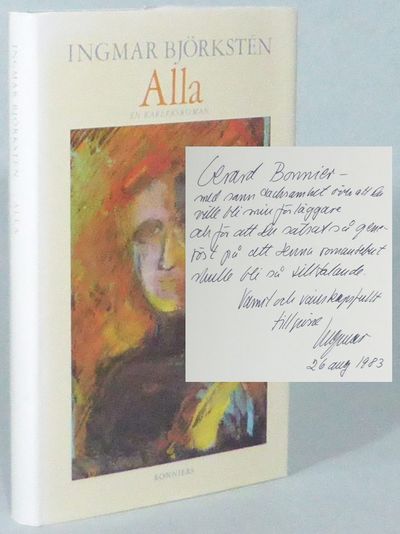 INGMAR BJÖRKSTÉN
Alla
EN KÄRLEKSROMAN
BONNIERS
INGMAR BJÖRKSTÉN ALLA
Gerard Bonnier –
med sann tacksamhet över att Du
ville bli min förläggare
och för att Du satsat så gene-
röst på att denna romandebut
skulle bli så välltalande.
Varmt och vänskapsfullt
Ingmar
26 aug 1983